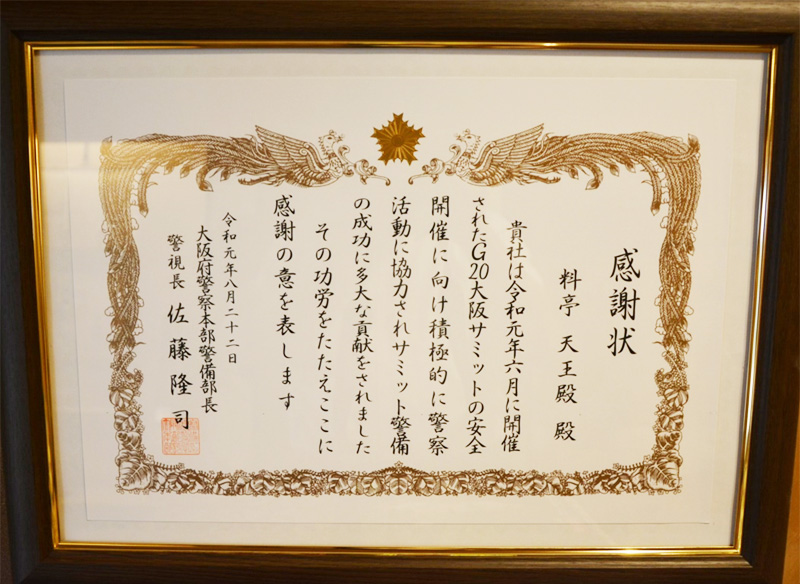 感謝状
料亭 天王殿 殿
貴社は令和元年六月に開催
されたG20大阪サミットの安全
開催に向け積極的に警察
活動に協力されサミット警備
の成功に多大な貢献をされました
その功労をたたえここに
感謝の意を表します
令和元年八月二十二日
大阪府警察本部警備部長
警視長 佐藤隆司